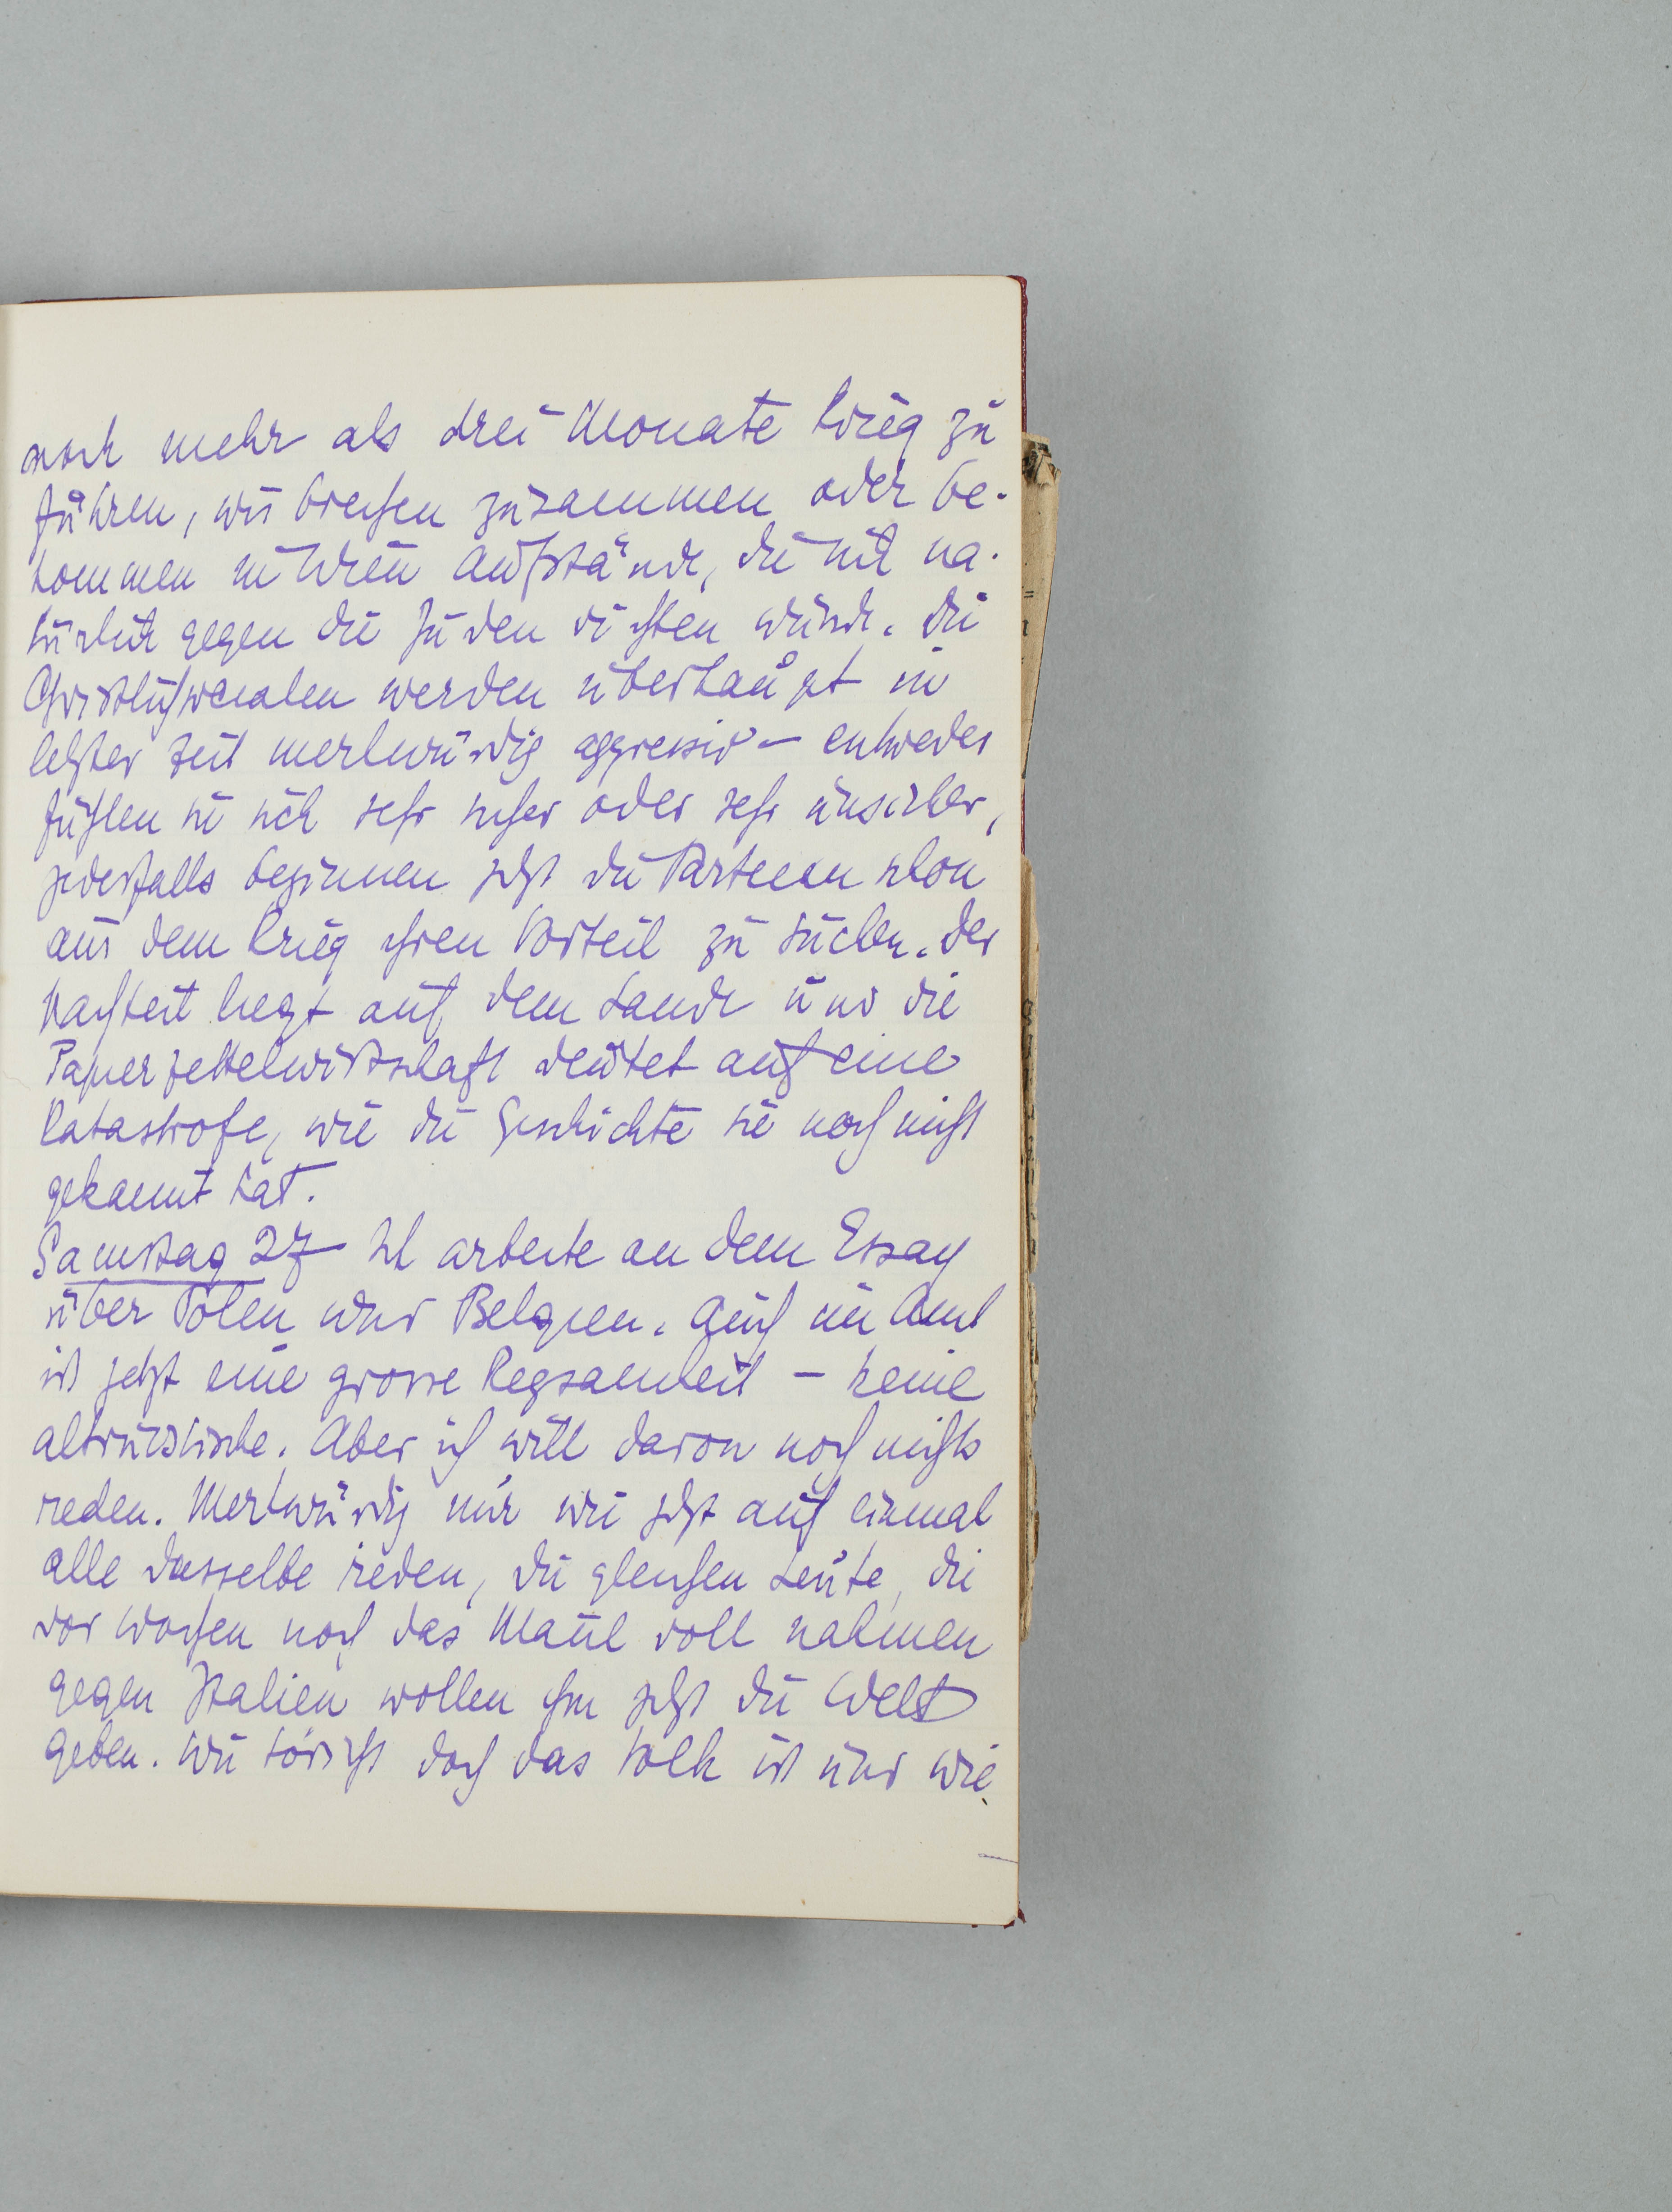 noch mehr als drei Monate Krieg zu
führen, wir brechen zusammen oder be-
kommen in Wien Aufstände, die sich na-
türlich gegen die Juden richten würde. Die
Christlichsocialen werden überhaupt in
letzter Zeit merkwürdig aggressiv – entweder
fühlen sie sich sehr sicher oder sehr unsicher,
jedesfalls beginnen jetzt die Parteien schon
aus dem Krieg ihren Vorteil zu suchen. Der
Nachteil liegt auf dem Lande und die
Papierzettelwirtschaft deutet auf eine
Katastrofe, wie die Geschichte sie noch nicht
gekannt hat.
Samstag 27 Ich arbeite an dem Essay
über Polen und Belgien. Auch im Amt
ist jetzt eine grosse Regsamkeit – keine
altruistische. Aber ich will davon noch nichts
reden. Merkwürdig nur wie jetzt auf einmal
alle dasselbe reden, die gleichen Leute, die
vor Wochen noch das Maul voll nahmen
gegen Italien wollen ihm jetzt die Welt
geben. Wie töricht doch das Volk ist und wie